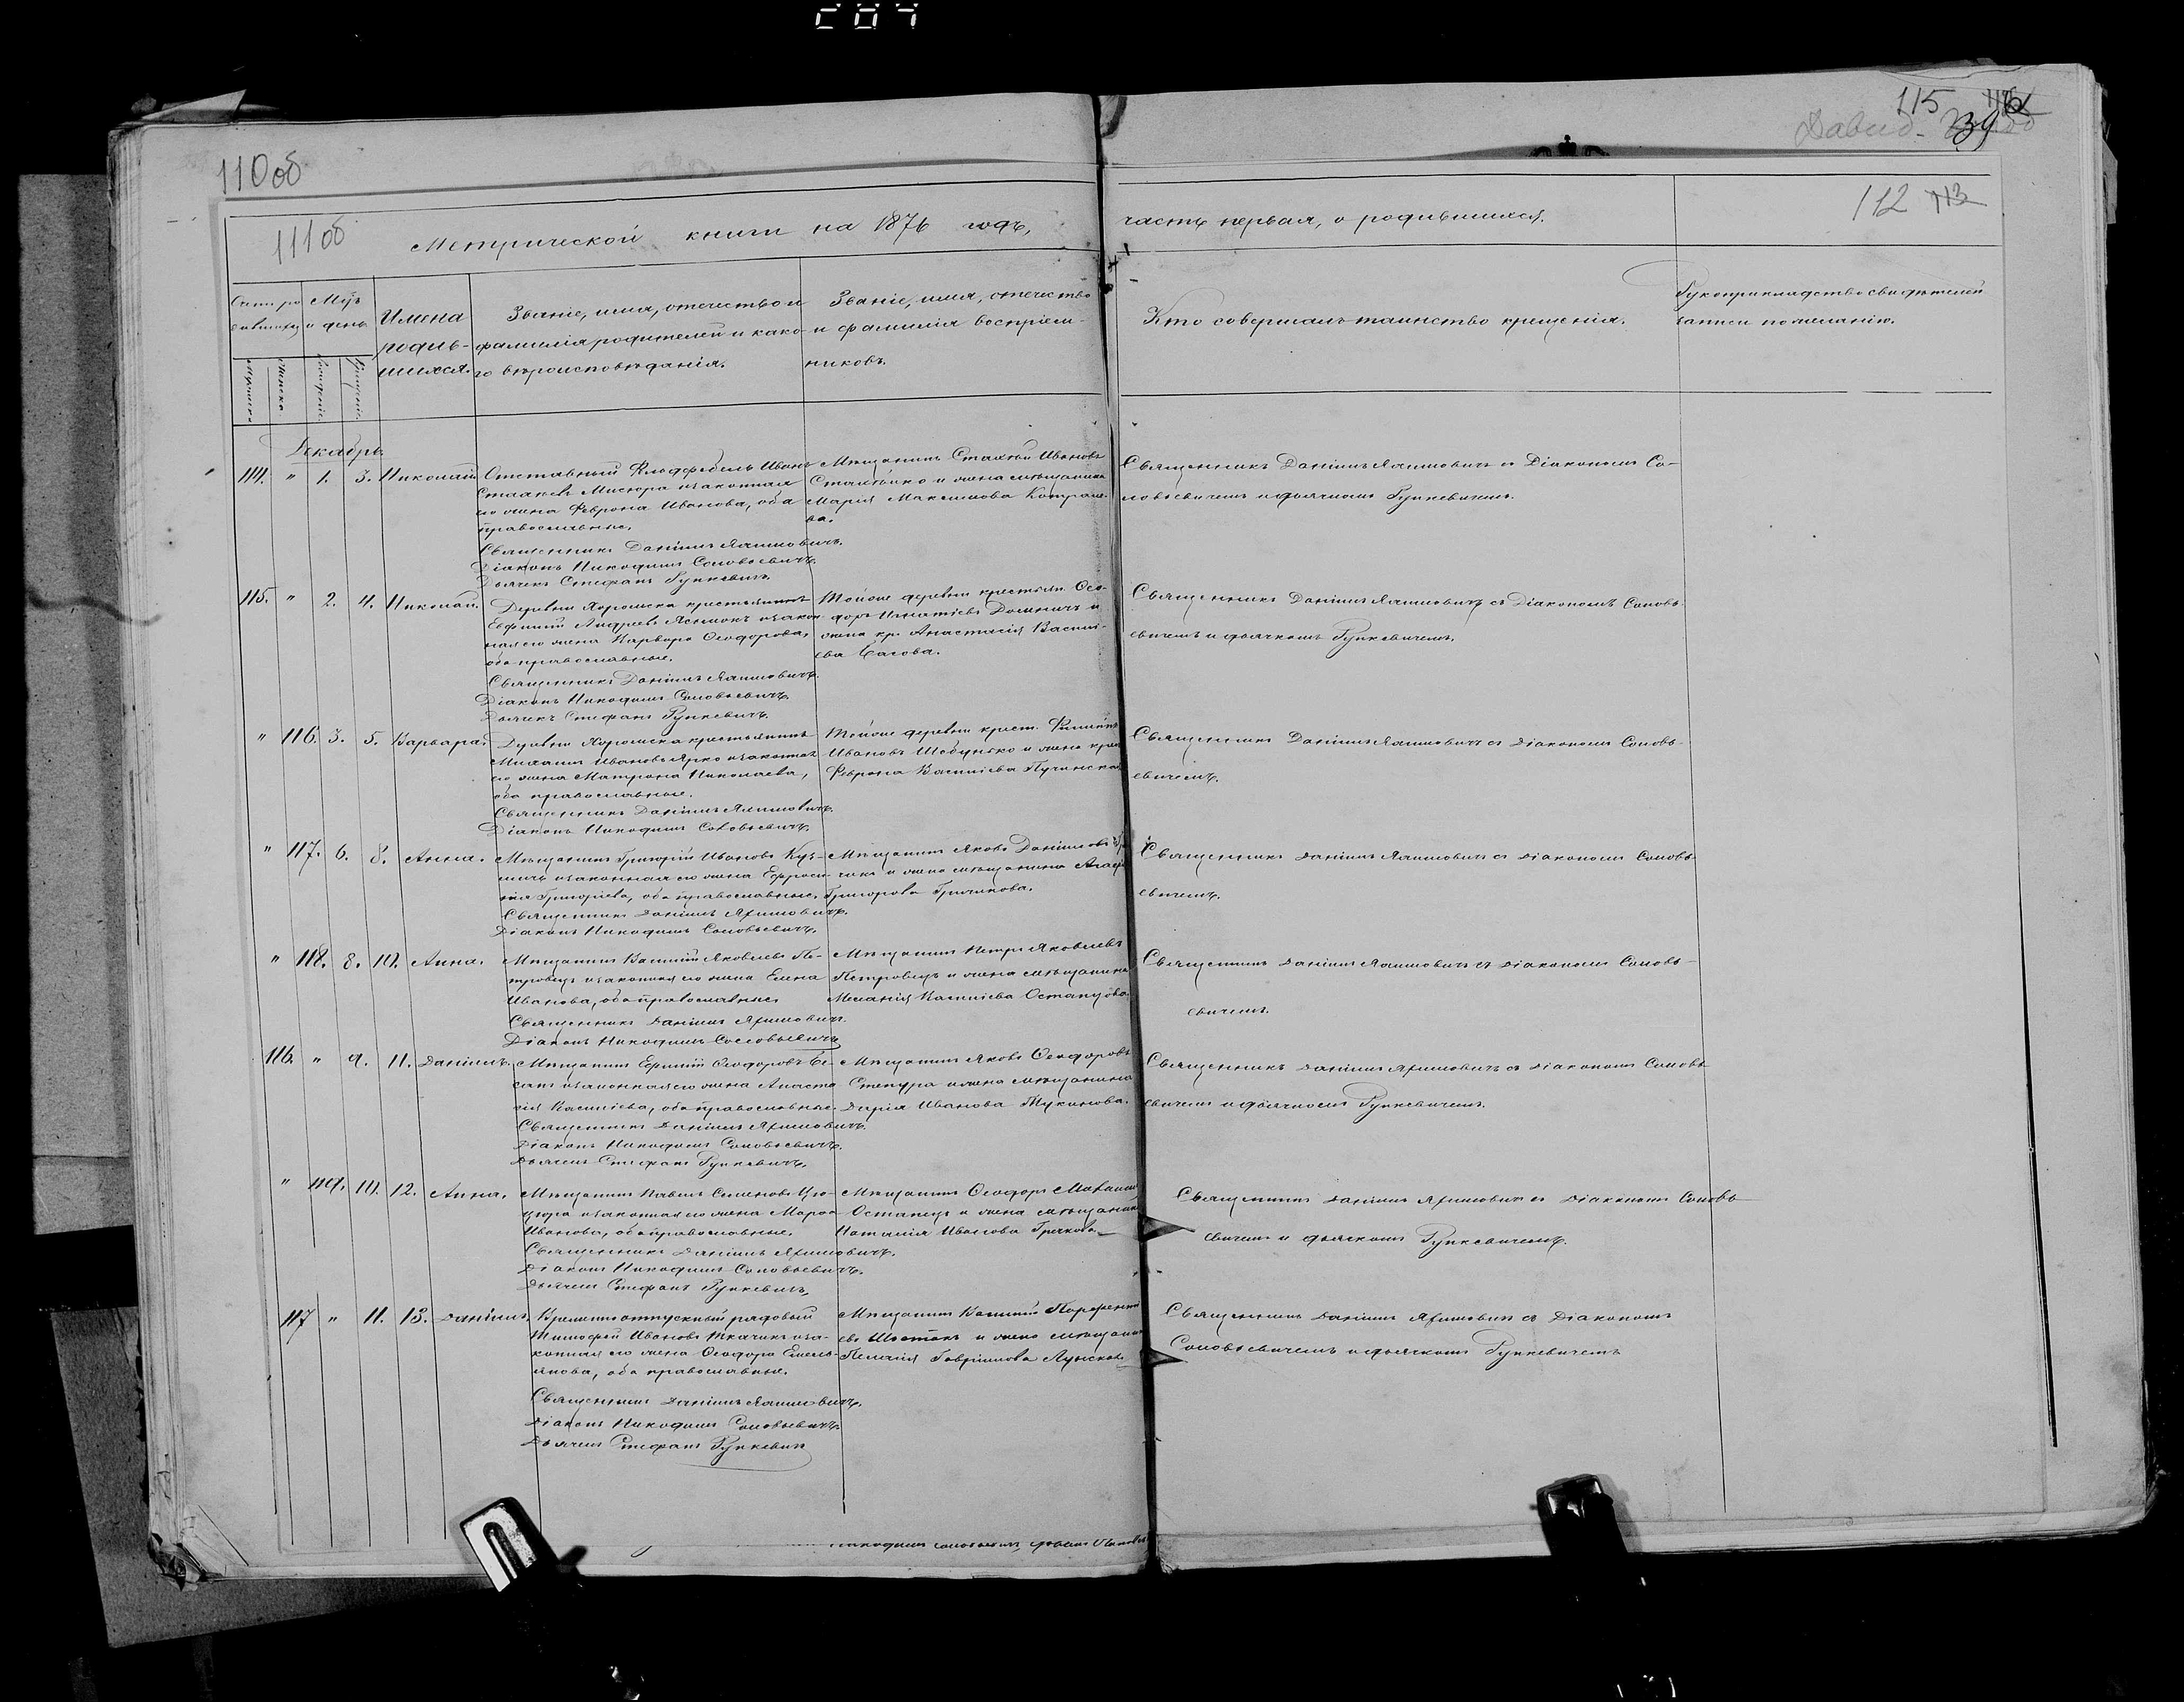 110 об
115
39
Давид-
111 об
112 113
Метрической книги на 1876 годъ,
часть первая, о родившихся.
Счетъ ро
Мцъ
и день
Имена
родив-
шихся.
Званіе, имя, отечество и
фамилія родителей и како-
го вѣроисповѣданія.
Званіе, имя, отечество
и фамилія воспріем-
никовъ.
Кто совершалъ таинство крещенія.
Рукоприкладство свидѣтелей
записи по желанію.
Декабрь.
114. " 1. 3. Николай.
Отставный Фельдфебель Иванъ
законная
его жена Феврона Иванова, оба
православные.
Священникъ Даніилъ Якимовичъ.
Діаконъ Никодимъ Соловьевичъ.
Дьячекъ Стефанъ Рункевичъ.
Мѣщанинъ Стахій Ивановъ
и жена мѣщанина
Марія Максимова
ва.
Священникъ Даніилъ Якимовичъ съ Діакономъ Со-
ловьевичемъ и дьячкомъ Рункевичемъ.
115. " 2. 4. Николай.
Деревни Хоромска крестьянинъ
Евфимій Андреевъ Ясянокъ и закон
ная его жена Варвара Ѳеодорова,
оба православные.
Священникъ Даніилъ Якимовичъ.
Діаконъ Никодимъ Соловьевичъ.
Дьячекъ Стефанъ Рункевичъ.
Тойже деревни крестьян. Ѳео-
доръ Игнатіевъ и
жена кр. Анастасія Василі-
ева
Священникъ Даніилъ Якимовичъ съ Діакономъ Соловь-
евичемъ и дьячкомъ Рункевичемъ.
" 116. 3. 5. Варвара.
Деревни Хоромска крестьянинъ
Михаилъ Ивановъ Ярко и законная
его жена Матрона Николаева,
оба православные.
Священникъ Даніилъ Якимовичъ.
Діаконъ Никодимъ Соловьевичъ.
Тойже деревни крест. Филиппъ
Ивановъ и жена крес
Феврона Василіева
Священникъ Даніилъ Якимовичъ съ Діакономъ Соловь-
евичемъ.
" 117. 6. 8. Анна.
Мѣщанинъ Григорій Ивановъ Куз-
мичъ и законная его жена Ефроси-
нія Григоріева, оба православные.
Священникъ Даніилъ Якимовичъ.
Діаконъ Никодимъ Соловьевичъ.
Мѣщанинъ Яковъ Даніиловъ
и жена мѣщанина
Григорова
Священникъ Даніилъ Якимовичъ съ Діакономъ Соловь-
евичемъ.
" 118. 8. 10. Анна.
Мѣщанинъ Василій Яковлевъ Пе-
тровецъ и законная его жена Елена
Иванова, оба православные.
Священникъ Даніилъ Якимовичъ.
Діаконъ Никодимъ Соловьевичъ
Мѣщанинъ Петръ Яковлевъ
Петровецъ и жена мѣщанина
Меланія Василіева Остапцова.
Священникъ Даніилъ Якимовичъ съ Діакономъ Соловь-
евичемъ.
116. " 9. 11. Даніилъ.
Мѣщанинъ Ефимій Ѳеодоровъ
законная его жена Анаста
сія Василіева, оба православные.
Священникъ Даніилъ Якимовичъ.
Діаконъ Никодимъ Соловьевичъ.
Дьячекъ Стефанъ Рункевичъ.
Мѣщанинъ Яковъ Ѳеодоровъ
Степура и жена мѣщанина
Дарія Иванова
Священникъ Даніилъ Якимовичъ съ Діакономъ Соловь
евичемъ и дьячкомъ Рункевичемъ.
" 119. 10. 12. Анна.
Мѣщанинъ Павелъ Семеновъ
и законная его жена Марѳа
Иванова, оба православные.
Священникъ Даніилъ Якимовичъ.
Діаконъ Никодимъ Соловьевичъ.
Дьячекъ Стефанъ Рункевичъ.
Мѣщанинъ Ѳеодоръ
Остапецъ и жена мѣщанина
Наталія Иванова
Священникъ Даніилъ Якимовичъ съ Діакономъ Соловь
евичемъ и дьячкомъ Рункевичемъ.
117 " 11. 13. Даніилъ.
Временно отпускный рядовый
Тимофей Ивановъ Ткачикъ и за-
конная его жена Ѳеодора Емель-
янова, оба православные.
Священникъ Даніилъ Якимовичъ.
Діаконъ Никодимъ Соловьевичъ.
Дьячекъ Стефанъ Рункевичъ
Мѣщанинъ Василій Парфенті
евъ и жена мѣщанин
Пелагія Гавріилова
Священникъ Даніилъ Якимовичъ съ Діакономъ
Соловьевичемъ и дьячкомъ Рункевичемъ